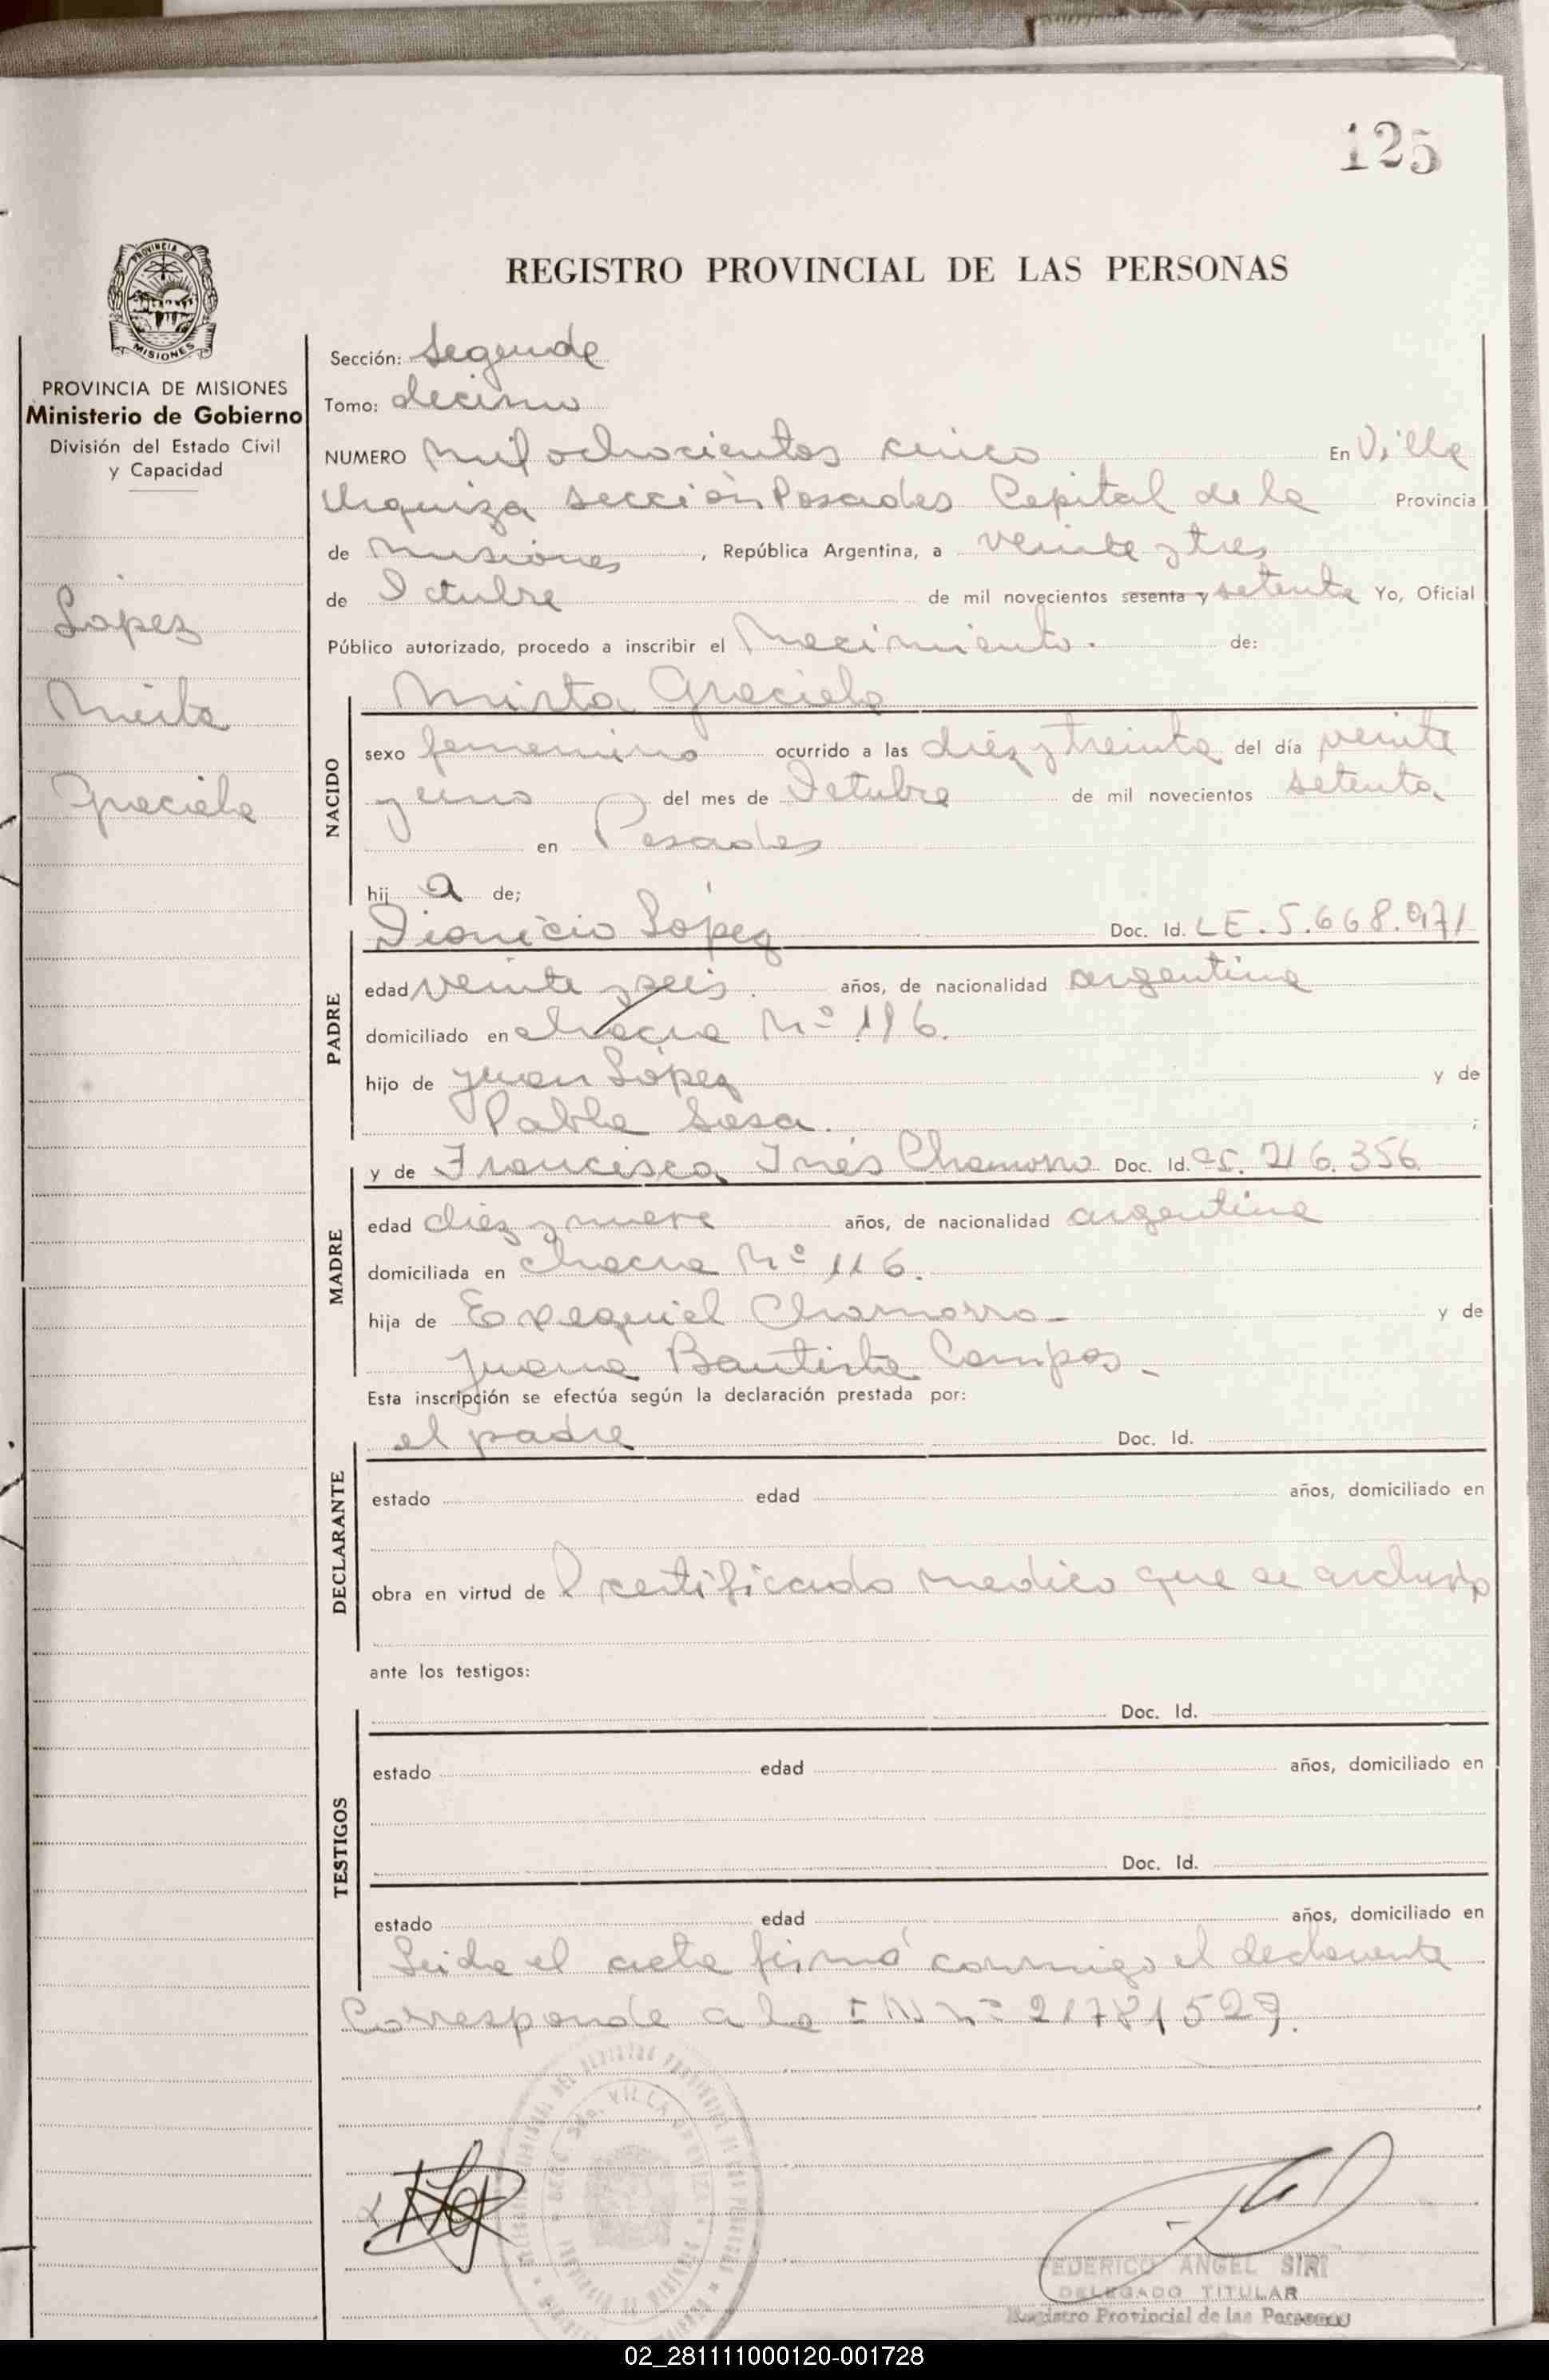 125
REGISTRO PROVINCIAL DE LAS PERSONAS
PROVINCIA DE MISIONES
MISIONES
PROVINCIA DE MISIONES
Ministerio de Gobierno
División del Estado Civil
y Capacidad
López
Mirta
Graciela
Sección: Segunda
Tomo: decimo
NUMERO mil ochocientos cinco En Villa
Urquiza sección Posadas Capital de la Provincia
de Misiones, República Argentina, a veinte y tres
de Octubre de mil novecientos sesenta y setenta Yo, Oficial
Público autorizado, procedo a inscribir el Nacimiento. de:
NACIDO
Mirta Graciela
sexo femenino ocurrido a las diéz y treinta del día veinte
y uno del mes de Octubre de mil novecientos setenta
en Posadas
hij a de;
PADRE
Dionicio López Doc. Id. LE. 5.668.971
edad veinte y seis. años, de nacionalidad argentina
domiciliado en chacra Nº 116.
hijo de Juan López y de
Pabla Sosa. ;
MADRE
y de Francisca Inés Chamorro Doc. Id. 216.356
edad diéz y nueve años, de nacionalidad argentina
domiciliada en chacra Nº 116.
hija de Exequiel Chamorro- y de
Juana Bautista Campos.-
Esta inscripción se efectúa según la declaración prestada por:
DECLARANTE
el padre Doc. Id.
estado edad años, domiciliado en
obra en virtud de certificado medico que se archiva
ante los testigos:
TESTIGOS
Doc. Id.
estado edad años, domiciliado en
Doc. Id.
estado edad años, domiciliado en
Leida el acta firmó conmigo el declarante
Corresponde a la I N nº 21781529.
VILLA URQUIZA
FEDERICO ANGEL SIRI
DELEGADO TITULAR
Registro Provincial de las Personas
02_281111000120-001728